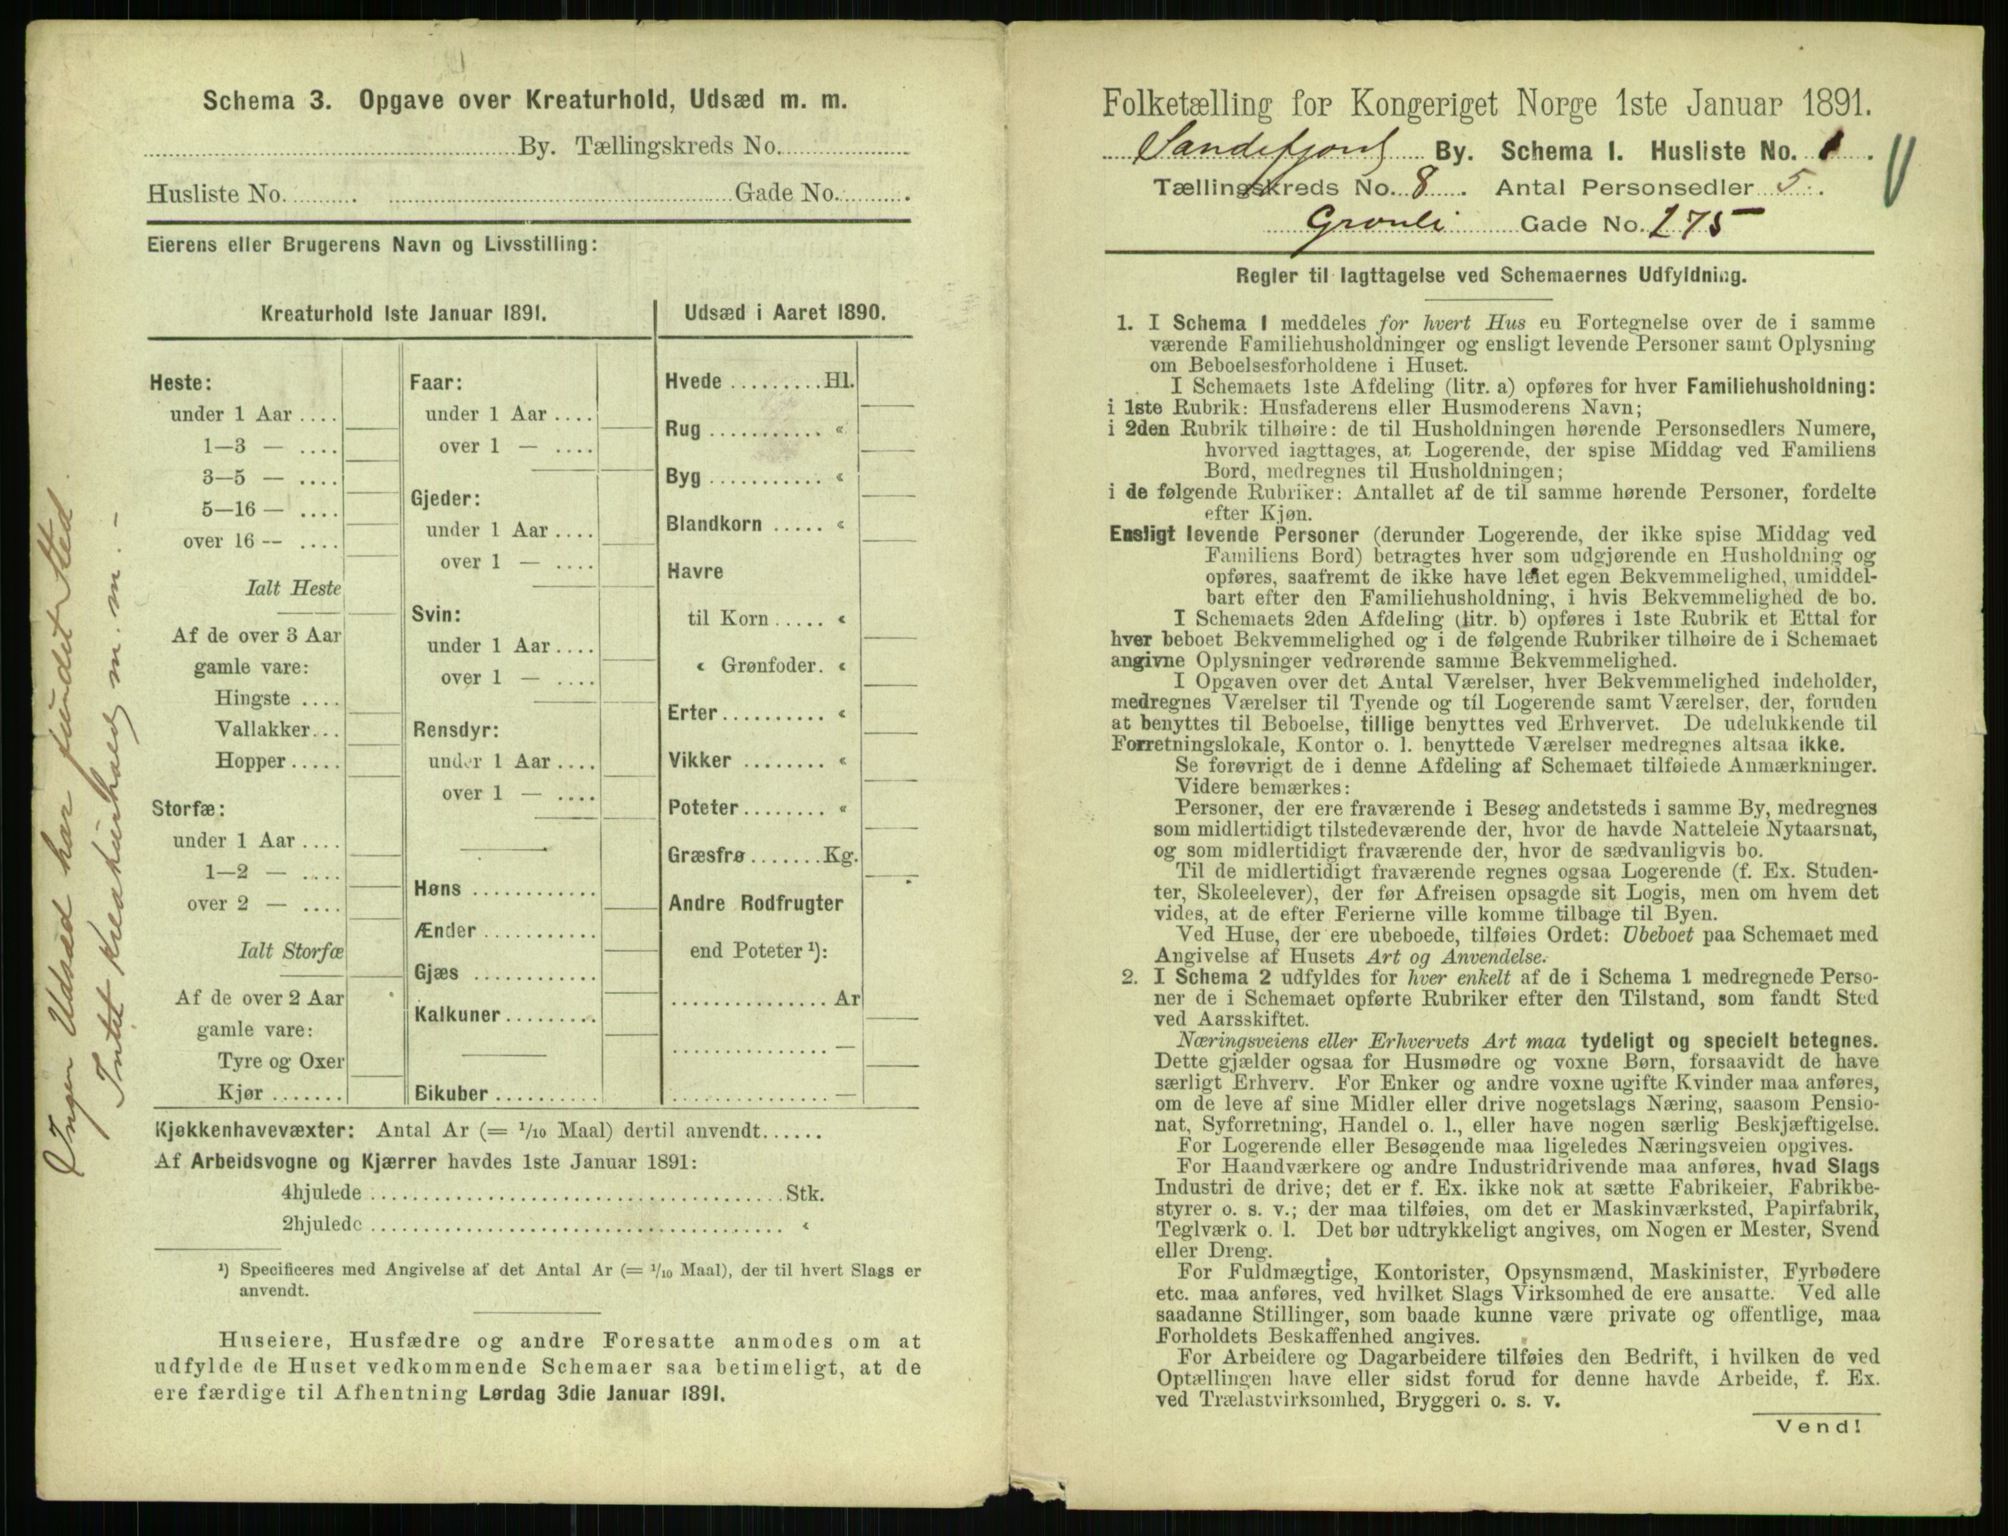 Schema 3. Opgave over Kreaturhold, Udsæd m. m.
By. Tællingskreds No.
Husliste No. Gade No.
Eierens eller Brugerens Navn og Livsstilling:
Kreaturhold 1ste Januar 1891.
Heste:
under 1 Aar
1—3 —
3—5 —
5—16 —
over 16 —
Ialt Heste
Af de over 3 Aar
gamle vare:
Hingste
Vallakker
Hopper
Storfæ:
under 1 Aar
1—2 —
over 2 —
Ialt Storfæ
Af de over 2 Aar
gamle vare:
Tyre og Oxer
Kjør
Faar:
under 1 Aar
over 1 —
Gjeder:
under 1 Aar
over 1 —
Svin:
under 1 Aar
over 1 —
Rensdyr:
under 1 Aar
over 1 —
Høns
Ænder
Gjæs
Kalkuner
Bikuber
Udsæd i Aaret 1890.
Hvede Hl.
Rug «
Byg «
Blandkorn «
Havre
til Korn «
« Grønfoder «
Erter «
Vikker «
Poteter «
Græsfrø Kg.
Andre Rodfrugter
end Poteter ¹):
Ar
—
—
Kjøkkenhavevæxter: Antal Ar (= 1/10 Maal) dertil anvendt
Af Arbeidsvogne og Kjærrer havdes 1ste Januar 1891:
4hjulede Stk.
2hjulede «
¹) Specificeres med Angivelse af det Antal Ar (= 1/10 Maal), der til hvert Slags er
anvendt.
Huseiere, Husfædre og andre Foresatte anmodes om at
udfylde de Huset vedkommende Schemaer saa betimeligt, at de
ere færdige til Afhentning Lørdag 3die Januar 1891.
Ingen Udsæd har fundet Sted
Intet Kreaturhold m. m. -
Folketælling for Kongeriget Norge 1ste Januar 1891.
Sandefjord By. Schema 1. Husliste No. 1.
Tællingskreds No. 8. Antal Personsedler 5.
Gronli Gade No. 275
Regler til Iagttagelse ved Schemaernes Udfyldning.
1. I Schema 1 meddeles for hvert Hus en Fortegnelse over de i samme
værende Familiehusholdninger og ensligt levende Personer samt Oplysning
om Beboelsesforholdene i Huset.
I Schemaets 1ste Afdeling (litr. a) opføres for hver Familiehusholdning:
i 1ste Rubrik: Husfaderens eller Husmoderens Navn;
i 2den Rubrik tilhøire: de til Husholdningen hørende Personsedlers Numere,
hvorved iagttages, at Logerende, der spise Middag ved Familiens
Bord, medregnes til Husholdningen;
i de følgende Rubriker: Antallet af de til samme hørende Personer, fordelte
efter Kjøn.
Ensligt levende Personer (derunder Logerende, der ikke spise Middag ved
Familiens Bord) betragtes hver som udgjørende en Husholdning og
opføres, saafremt de ikke have leiet egen Bekvemmelighed, umiddel-
bart efter den Familiehusholdning, i hvis Bekvemmelighed de bo.
I Schemaets 2den Afdeling (litr. b) opføres i 1ste Rubrik et Ettal for
hver beboet Bekvemmelighed og i de følgende Rubriker tilhøire de i Schemaet
angivne Oplysninger vedrørende samme Bekvemmelighed.
I Opgaven over det Antal Værelser, hver Bekvemmelighed indeholder,
medregnes Værelser til Tyende og til Logerende samt Værelser, der, foruden
at benyttes til Beboelse, tillige benyttes ved Erhvervet. De udelukkende til
Forretningslokale, Kontor o. l. benyttede Værelser medregnes altsaa ikke.
Se forøvrigt de i denne Afdeling af Schemaet tilføiede Anmærkninger.
Videre bemærkes:
Personer, der ere fraværende i Besøg andetsteds i samme By, medregnes
som midlertidigt tilstedeværende der, hvor de havde Natteleie Nytaarsnat,
og som midlertidigt fraværende der, hvor de sædvanligvis bo.
Til de midlertidigt fraværende regnes ogsaa Logerende (f. Ex. Studen-
ter, Skoleelever), der før Afreisen opsagde sit Logis, men om hvem det
vides, at de efter Ferierne ville komme tilbage til Byen.
Ved Huse, der ere ubeboede, tilføies Ordet: Ubeboet paa Schemaet med
Angivelse af Husets Art og Anvendelse.
2. I Schema 2 udfyldes for hver enkelt af de i Schema 1 medregnede Perso-
ner de i Schemaet opførte Rubriker efter den Tilstand, som fandt Sted
ved Aarsskiftet.
Næringsveiens eller Erhvervets Art maa tydeligt og specielt betegnes.
Dette gjælder ogsaa for Husmødre og voxne Børn, forsaavidt de have
særligt Erhverv. For Enker og andre voxne ugifte Kvinder maa anføres,
om de leve af sine Midler eller drive nogetslags Næring, saasom Pensio-
nat, Syforretning, Handel o. l., eller have nogen særlig Beskjæftigelse.
For Logerende eller Besøgende maa ligeledes Næringsveien opgives.
For Haandværkere og andre Industridrivende maa anføres, hvad Slags
Industri de drive; det er f. Ex. ikke nok at sætte Fabrikeier, Fabrikbe-
styrer o. s. v.; der maa tilføies, om det er Maskinværksted, Papirfabrik,
Teglværk o. l. Det bør udtrykkeligt angives, om Nogen er Mester, Svend
eller Dreng.
For Fuldmægtige, Kontorister, Opsynsmænd, Maskinister, Fyrbødere
etc. maa anføres, ved hvilket Slags Virksomhed de ere ansatte. Ved alle
saadanne Stillinger, som baade kunne være private og offentlige, maa
Forholdets Beskaffenhed angives.
For Arbeidere og Dagarbeidere tilføies den Bedrift, i hvilken de ved
Optællingen have eller sidst forud for denne havde Arbeide, f. Ex.
ved Trælastvirksomhed, Bryggeri o. s. v.
Vend!